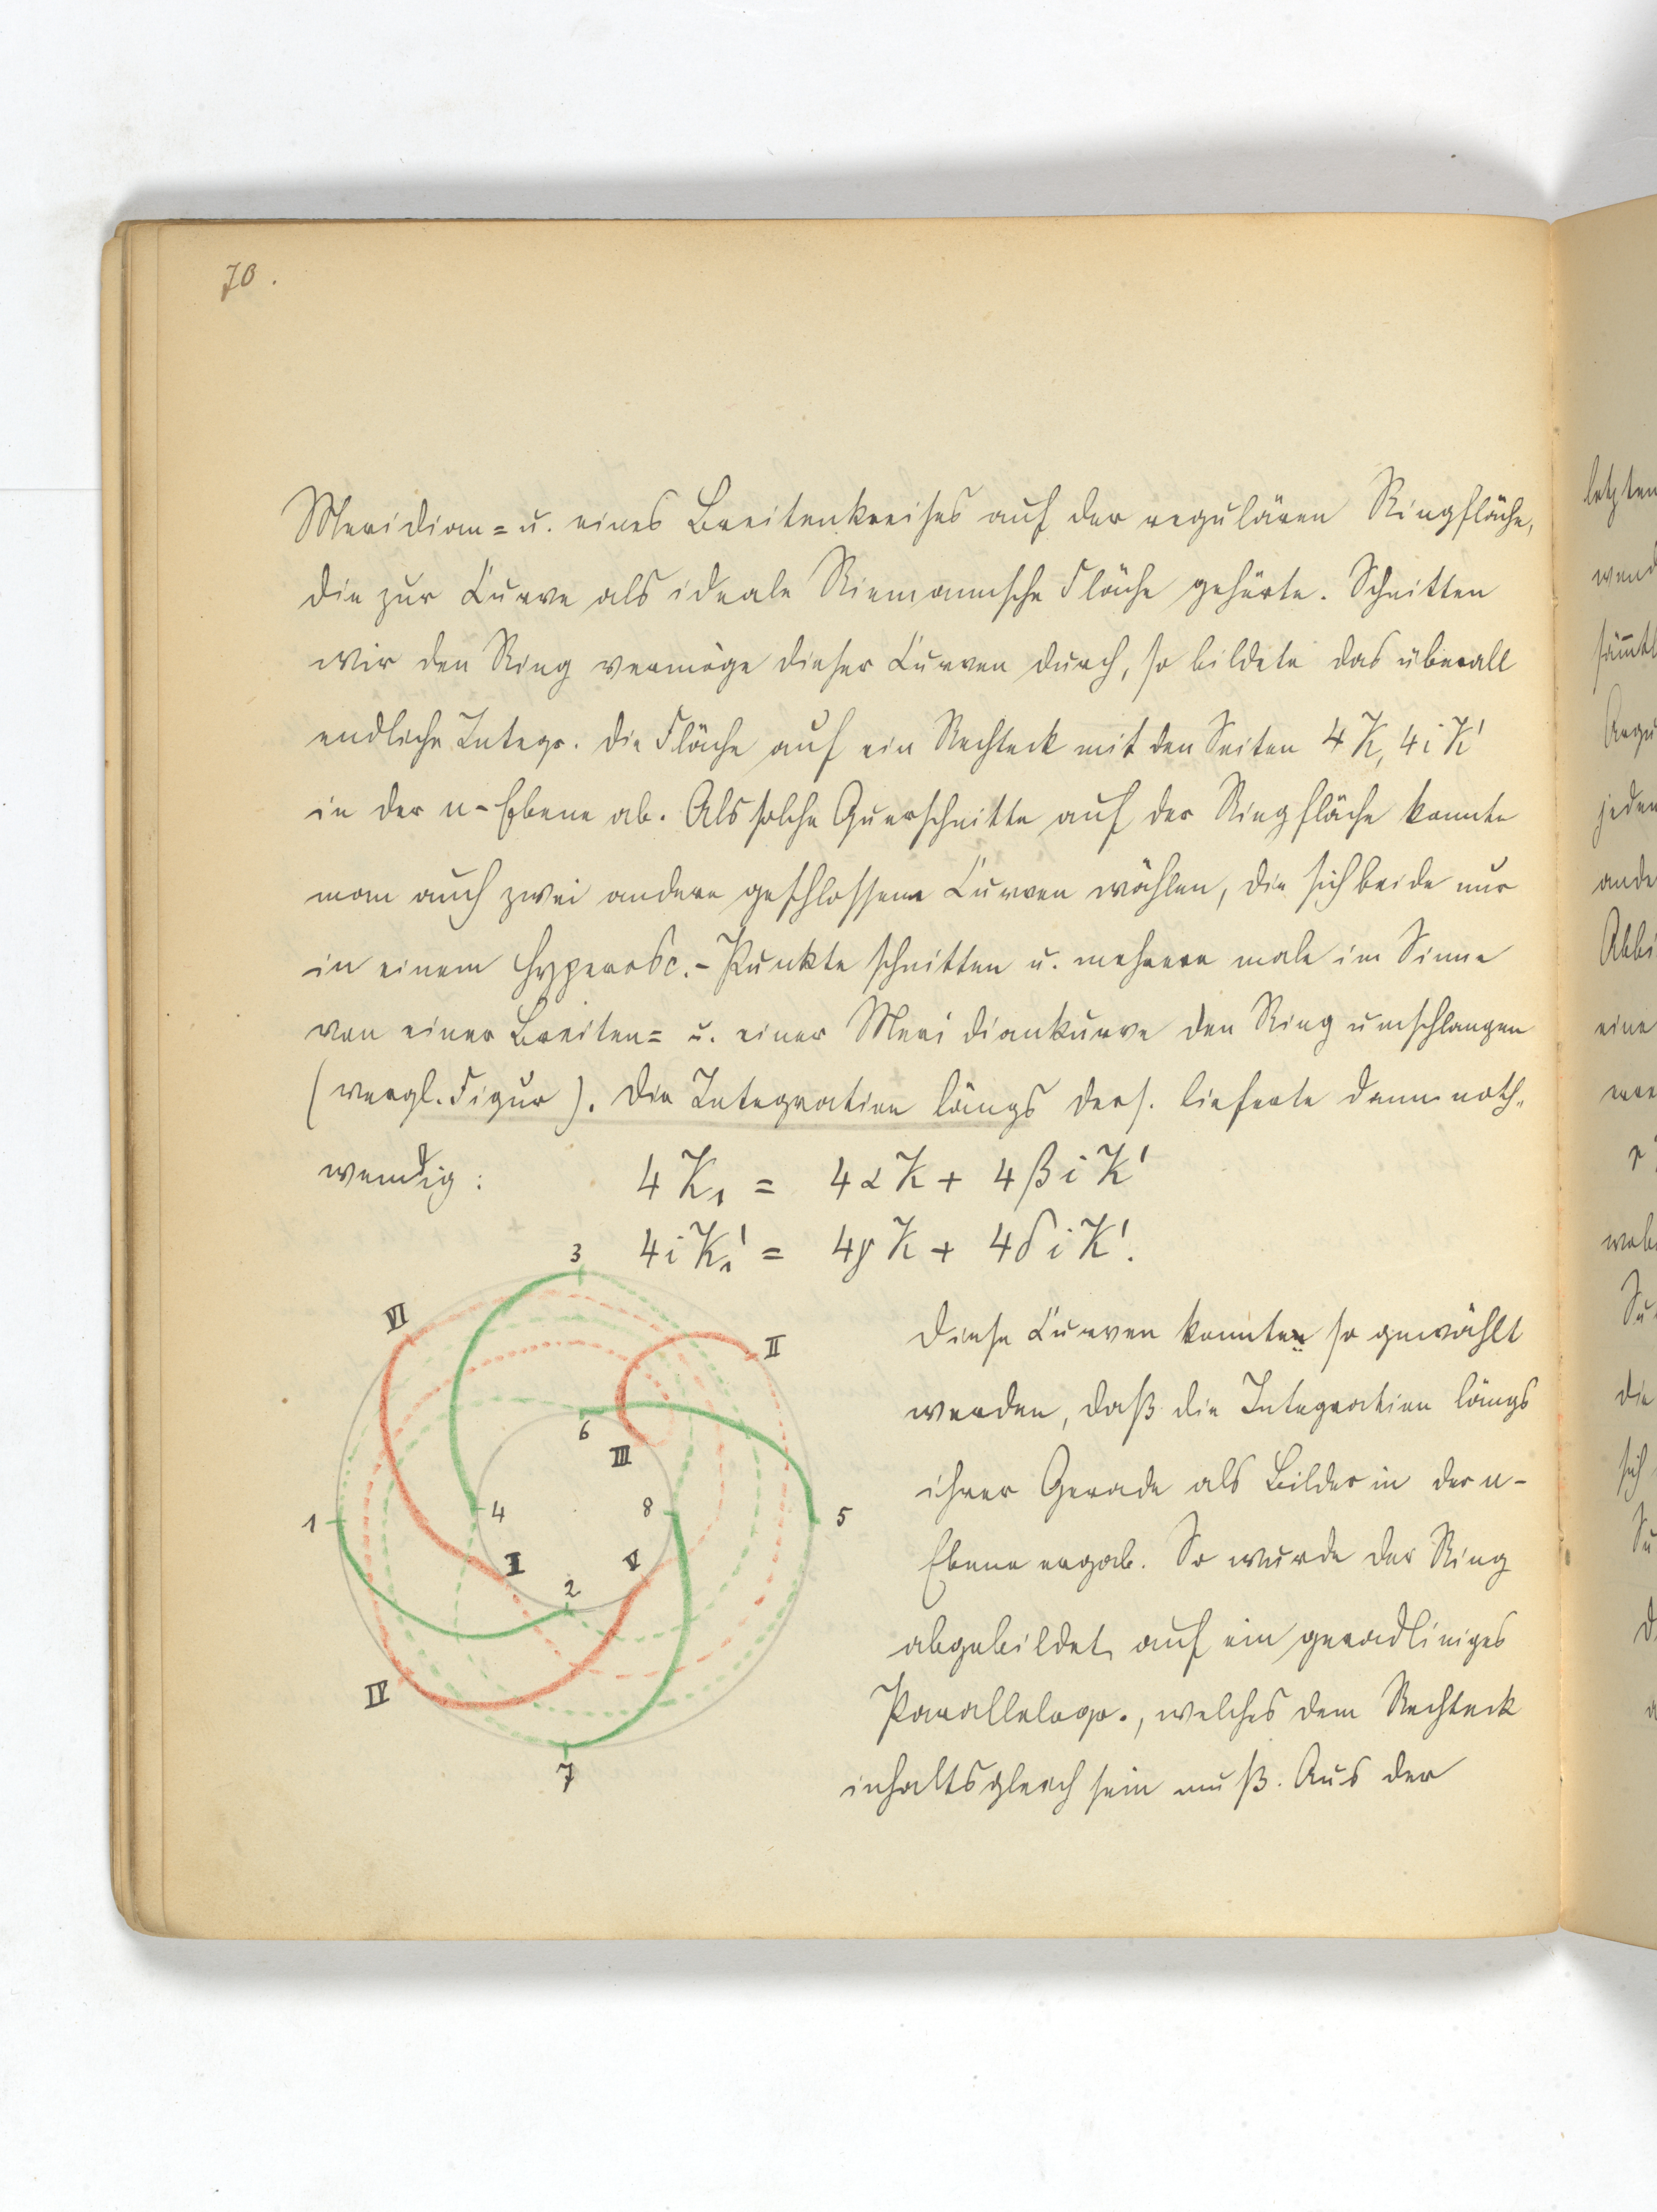 70.
Meridian= u. eines Breitenkreises auf der regulären Ringfläche,
die zur Curve als ideale Riemannsche Fläche gehörte. Schnitten
wir den Ring vermöge dieser Curven durch, so bildete das überall
endliche Integr. die Fläche auf ein Rechteck mit den Seiten 4K, 4iK'
in der u-Ebene ab. Als solche Querschnitte auf der Ringfläche konnte
man auch zwei andere geschlossene Curven wählen, die sich beide nur
in einem Hyperosc.-Punkte schnitten u. mehrere male im Sinne
von einer Breiten= u. einer Meridiankurve den Ring umschlangen
(vergl. Figur). Die Integration längs ders. lieferte dann noth=
wendig:
4K₁ = 4αK + 4βiK'
4iK₁' = 4γK + 4δiK'.
3
VI
II
6
III
1
4
8
5
I
V
2
IV
7
Diese Curven konnten so gewählt
werden, daß die Integration längs
ihrer Gerade als Bilder in der u-
Ebene ergab. So wurde der Ring
abgebildet auf ein geradliniges
Parallelogr., welches dem Rechteck
inhaltsgleich sein muß. Aus der
letzten
jeden
eine
die